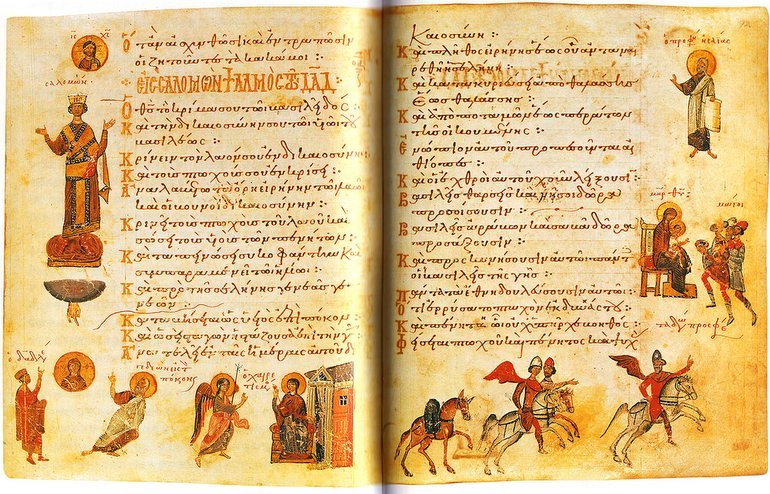 ΙϹ ΧϹ
σαλομών
Ὅταν αἰσχυνθῶσι καὶ ἐντραπῶσιν
οἱ ζητοῦντες τὰ κακά μοι :
ΕΙΣ ΣΑΛΟΜΩΝ ΨΑΛΜΟΣ ΤΩ ΔΑΔ
Ὁ θς τὸ κρίμα σου τῶ βασιλεῖ δός :
Καὶ τὴν δικαιοσύνην σου τῶ υἱῶ τοῦ
βασιλέως :
Κρίνειν τὸν λαόν σου ἐν δικαιοσύνη
Καὶ τοὺς πτωχούς σου ἐν κρίσει :
Ἀναλαβέτω τὰ ὄρη εἰρήνην τῶ λαῶ
καὶ οἱ βουνοὶ δικαιοσύνην :
Κρινεῖ τοὺς πτωχοὺς τοῦ λαοῦ καὶ
σώσει τοὺς υἱοὺς τῶν πενήτων :
Καὶ ταπεινώσει συκοφάντην καὶ
συμπαραμενεῖ τῶ ἡλίω :
Καὶ πρὸ τῆς σελήνης γενεὰς γε
νεῶν :
Καταβήσεται ὡς ὑετὸς ἐπὶ πόκον
Καὶ ὡσεὶ σταγὼν ἡ στάζουσα ἐπὶ τὴν γῆν
Ἀνατελεῖ ἐν ταῖς ἡμέραις αὐτοῦ δι
ὁ χαιρε
τισμός
καιοσύνη :
Καὶ πλῆθος εἰρήνης ἕως οὗ ἀνταναι
ρεθῆ ἡ σελήνη :
Καὶ κατακυριεύσει ἀπὸ θαλάσσης
ἕως θαλάσσης :
Καὶ ἀπὸ ποταμῶν ἕως περάτων
τῆς οἰκουμένης :
Ἐνώπιον αὐτοῦ προπεσοῦνται αἰ
θίοπες :
Καὶ οἱ ἐχθροὶ αὐτοῦ χοῦν λείξουσι
Βασιλεῖς θαρσεῖς καὶ νῆσοι δῶρα
προσοίσουσιν :
Βασιλεῖς ἀράβων καὶ σαβᾶ δῶρα
προσάξουσιν :
Καὶ προσκυνήσουσιν αὐτῶ πάντες
οἱ βασιλεῖς τῆς γῆς
πάντα τὰ ἔθνη δουλεύσουσιν αὐτῶ :
Ὅτι ἐρρύσατο πτωχὸν ἐκ δυνάστου :
Καὶ πένητα ὧ οὐχ ὑπῆρχε βοηθός
Φείσεται πτωχοῦ καὶ πένητος καὶ ψυχ
ὁ προφ ἠλίας
μηρ θυ
μάγοι